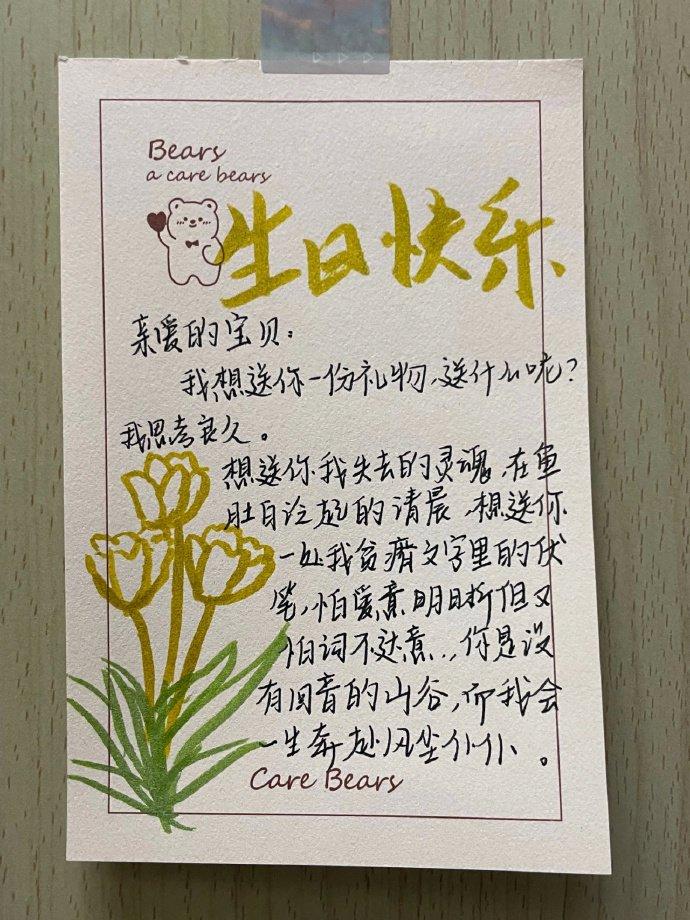 Bears
a care bears
生日快乐
亲爱的宝贝:
我想送你一份礼物,送什么呢?
我思考良久。
想送你我失去的灵魂,在鱼
肚白泛起的清晨,想送你
一处我贫瘠文字里的伏
笔,怕爱意明目昕但又
怕词不达意..,你是没
有回音的山谷,而我会
一生奔赴风尘仆仆。
Care Bears